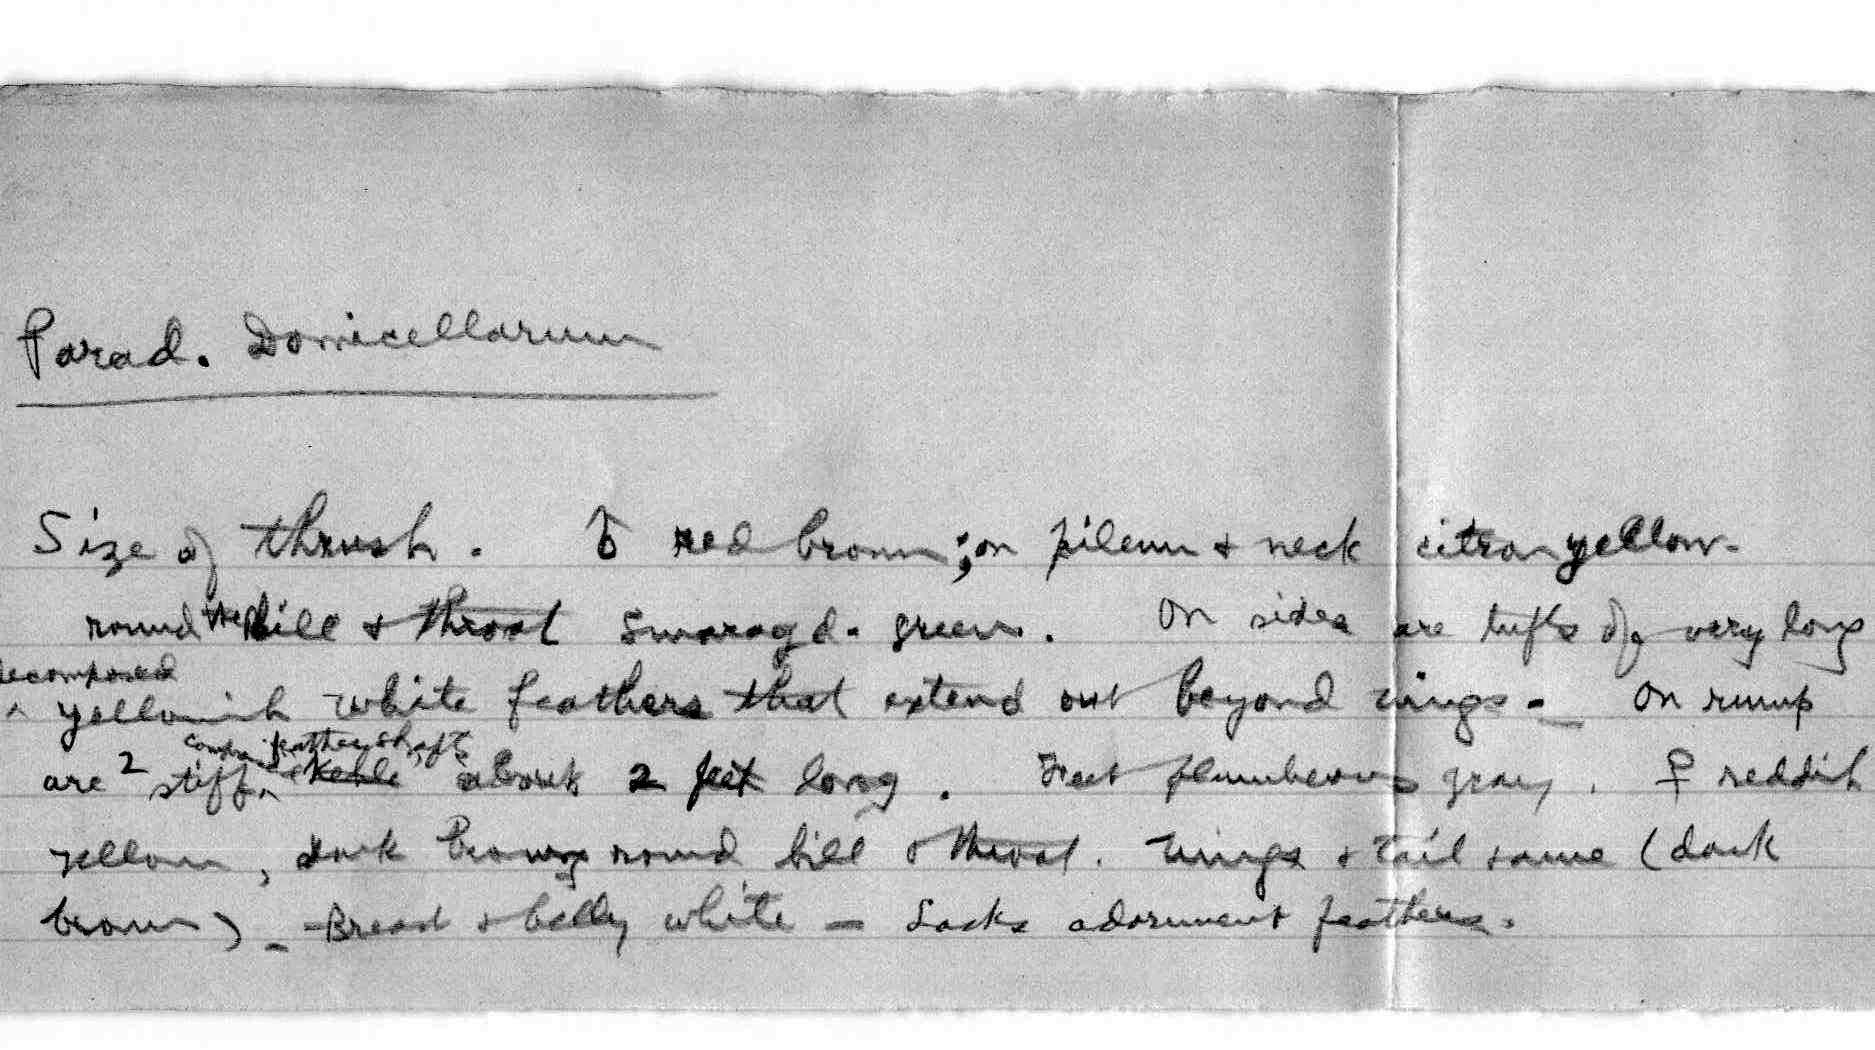 Parad. Domicellarum
Size of thrush. ♂ red brown; on pileum & neck citron yellow.
round the bill & throat smaragd-green. On sides are tufts of very long
decomposed
yellowish white feathers that extend out beyond wings. On rump
feather shafts
are 2 stiff, about 2 feet long. Feet plumbeous gray. ♀ reddish
yellow, dark brown round bill & throat. Wings & tail same (dark
brown) - Breast & belly white - Lacks adornment feathers.